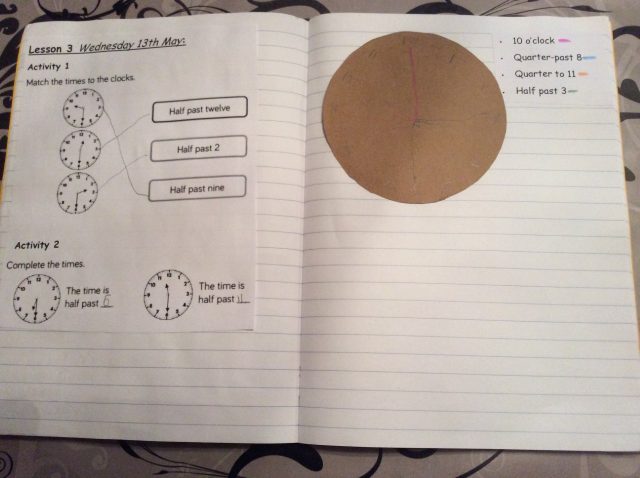 Lesson 3 Wednesday 13th May:
Activity 1
Match the times to the clocks.
Half past twelve
Half past 2
Half past nine
Activity 2
Complete the times.
The time is
half past 6
The time is
half past 11
10 o'clock
Quarter-past 8
Quarter to 11
Half past 3